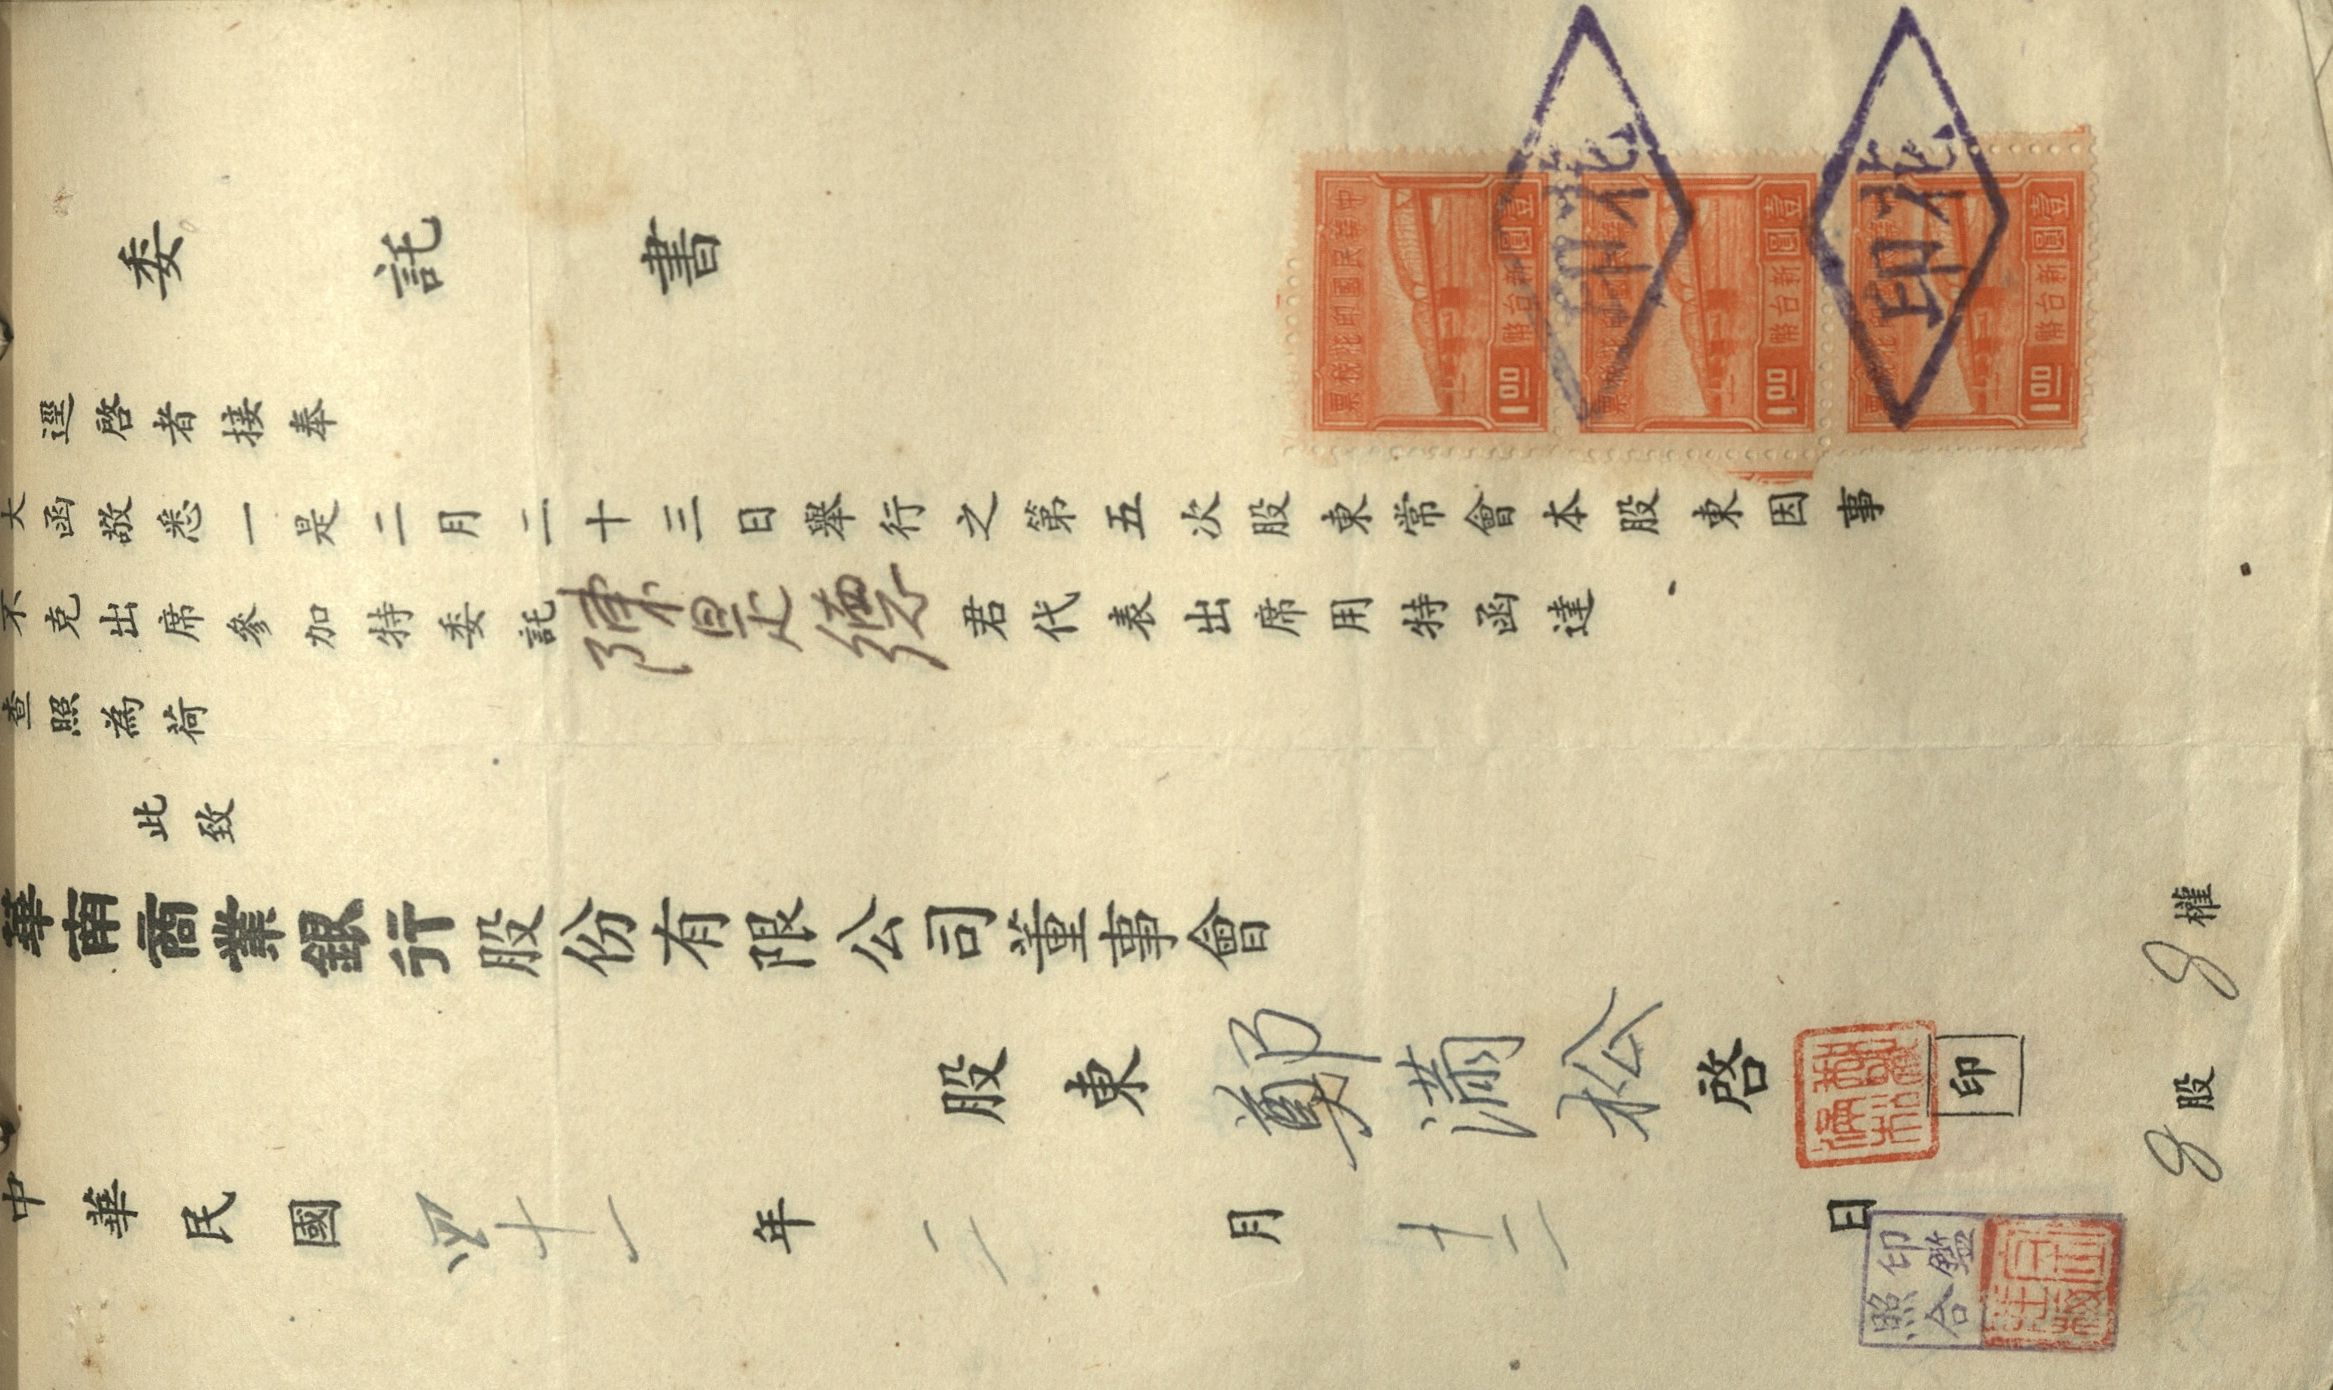 委託書
逕啓者接奉
大函敬悉一是二月二十三日舉行之第五次股東常會本股東因事
不克出席參加特委託陳晏德君代表出席用特函達
查照為荷
此致
華南商業銀行股份有限公司董事會
股東鄭滿松啓 印
中華民國四十一年二月十二日
8股 8權
中華民國印花稅票
壹圓 新台幣 1.00
壹圓 新台幣 1.00
壹圓 新台幣 1.00
印花
印花
印鑑
照合